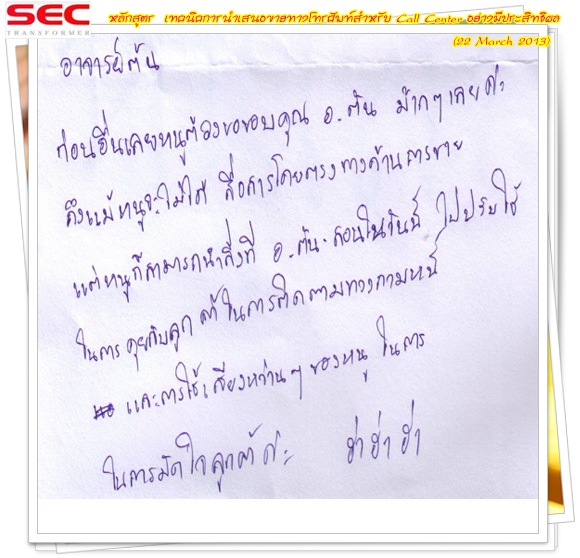 SEC
TRANSFORMER
หลักสูตร เทคนิคการนำเสนอขายทางโทรศัพท์สำหรับ Call Center อย่างมีประสิทธิผล
(22 March 2013)
อาจารย์ต้น
ก่อนอื่นเลยหนูต้องขอขอบคุณ อ.ต้น ม๊ากๆเลยค่ะ
ถึงแม้หนูจะไม่ได้ สื่อสารโดยตรงทางด้านการขาย
แต่หนูก็สามารถนำสิ่งที่ อ.ต้น สอนในวันนี้ ไปปรับใช้
ในการคุยกับลูกค้าในการติดตามทวงถามหนี้
และการใช้เสียงหวานๆของหนู ในการ
ในการมัดใจลูกค้าค่ะ ฮ่าฮ่าฮ่า